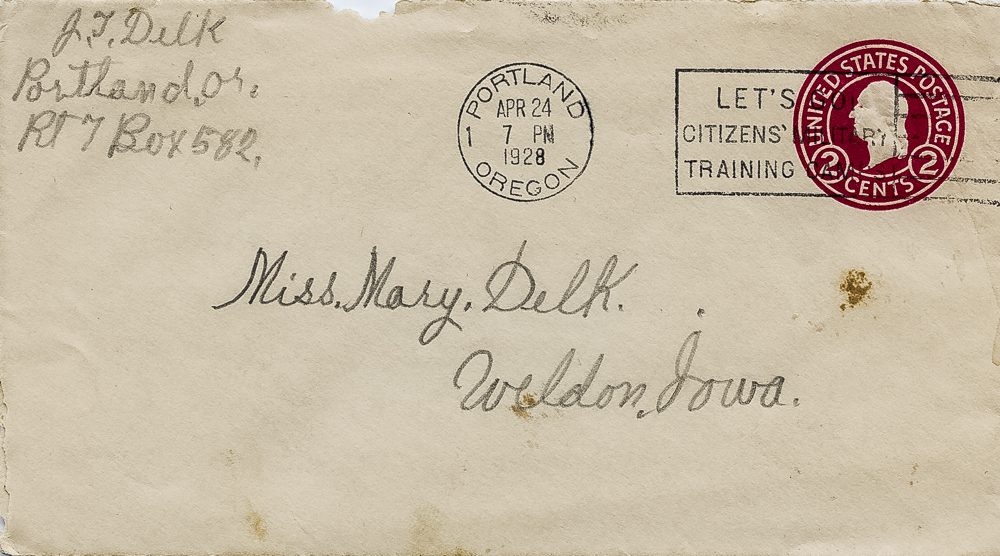 J.T. Delk
Portland, Or.
Rt 7 Box 582.
PORTLAND
APR 24
1 7 PM
1928
OREGON
LET'S GO!
CITIZENS' MILITARY
TRAINING CAMPS
UNITED STATES POSTAGE
2 2
CENTS
Miss. Mary. Delk.
Weldon, Iowa.